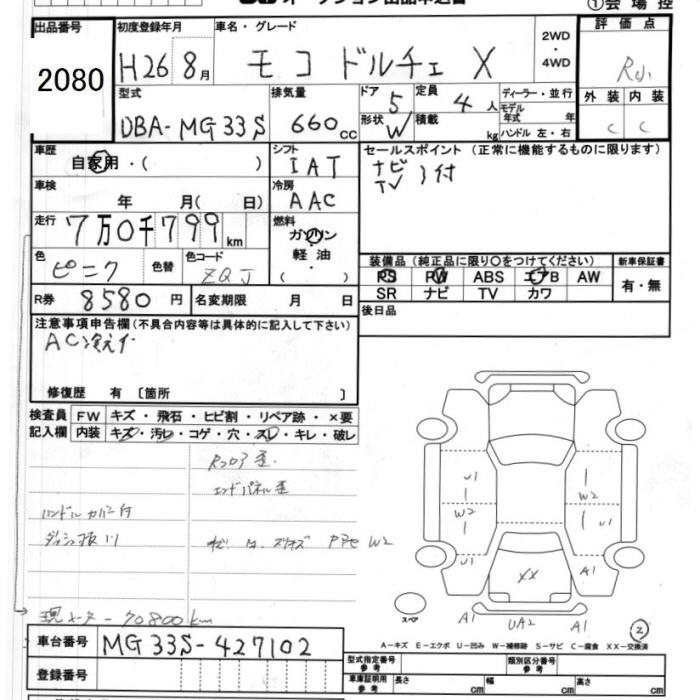 ①会場控
出品番号 初度登録年月 車名・グレード 2WD・4WD 評価点
2080 H26 8月 モコ ドルチェ X
外装 内装
C C
型式 排気量 ドア 5 定員 4人 ディーラー・並行
DBA-MG33S 660cc 形状 W 積載 kg モデル年式 年
ハンドル 左・右
車歴 自家用・( ) シフト IAT セールスポイント (正常に機能するものに限ります)
ナビ
TV 付
車検 年 月( 日) 冷房 AAC
走行 7万0千799km 燃料 ガソリン・軽油( )
色 ピンク 色替 色コード ZQJ
装備品 (純正品に限り○をつけてください) 新車保証書
PS PW ABS エアB AW 有・無
SR ナビ TV カワ
R券 8580円 名変期限 月 日 後日品
注意事項申告欄(不具合内容等は具体的に記入して下さい)
修復歴 有 〔箇所 〕
検査員 FW キズ・飛石・ヒビ割・リペア跡・×要
記入欄 内装 キズ・汚レ・コゲ・穴・スレ・キレ・破レ
エンドパネル歪
ハンドルカバー付
W2
現メーター 70800km
U1 W2 U1 W2 U1 A1 XX A1 UA2 A1
スペア
②
A-キズ E-エクボ U-凹み W-補修跡 S-サビ C-腐食 XX-交換済
車台番号 MG33S-427102
登録番号
型式指定番号 参考 類別区分番号 参考
車庫証明用 参考 長さ cm 幅 cm 高さ cm